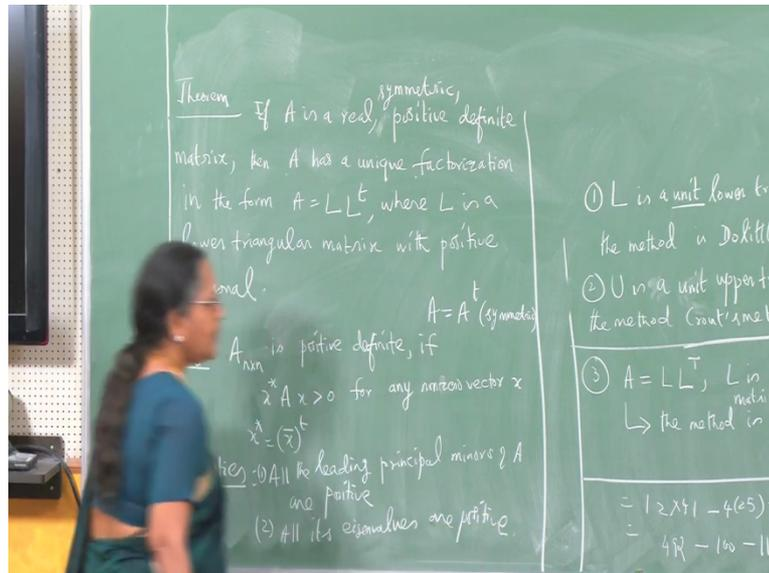 Theorem
symmetric,
If A is a real, positive definite
matrix, then A has a unique factorization
in the form A = LL^t, where L is a
lower triangular matrix with positive
A = A^t (symmetric)
A_nxn is positive definite, if
x^* A x > 0 for any nonzero vector x
x^* = (x̄)^t
(1) All the leading principal minors of A
are positive
(2) All its eigenvalues are positive.
① L is a unit lower tr
the method is Dolittl
② U is a unit upper t
the method Crout's met
③ A = LL^T, L is
matri
↳ the method is
= 12×41 - 4(25)
= 492 - 100 - 11